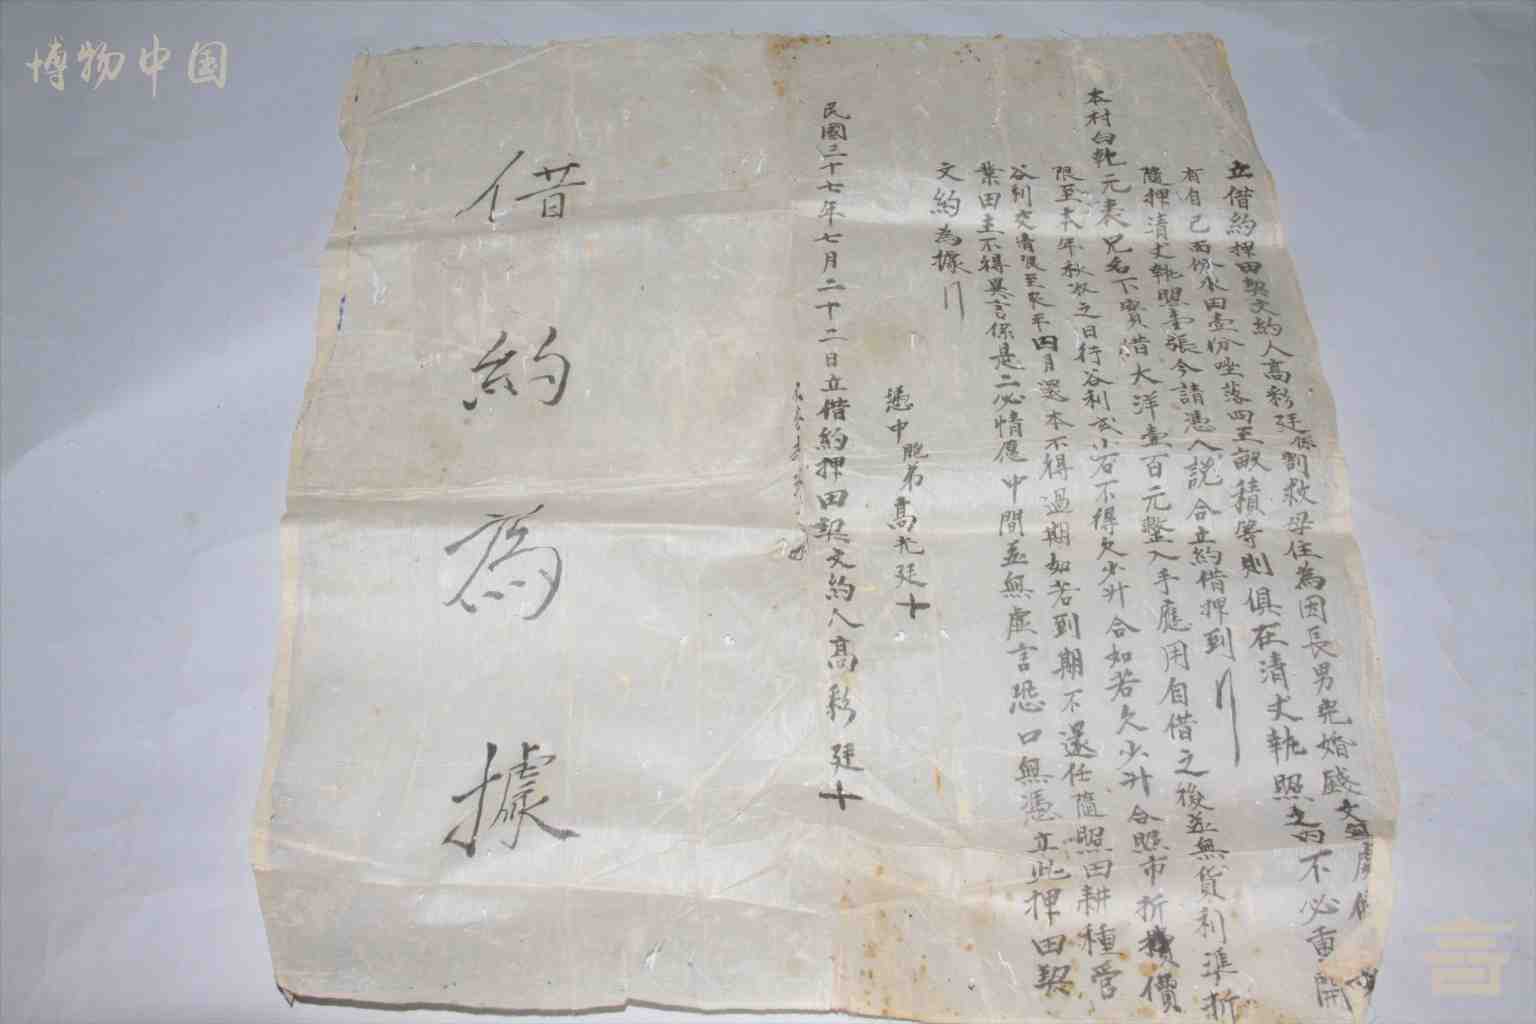 博物中国
立借約押田契文約人高彩廷係割救梁住為因長男完婚
有自己面份水田壹份坐落四至畝積等則俱在清丈執照之內不必重開
隨押清丈執照壹張今請憑人說合立約借押到
本村白執元表兄名下實借大洋壹百元整入手應用自借之後並無貨利準折
限至來年秋收之日行谷利弍小石不得欠少升合如若欠少升合照市折價
谷利交清限至來年四月還本不得過期如若到期不還任隨照田耕種管
業田主不得異言係是二必情愿中間並無虛言恐口無憑立此押田契
文約為據
憑中胞弟高光廷十
民國三十七年七月二十二日立借約押田契文約人高彩廷十
借約為據